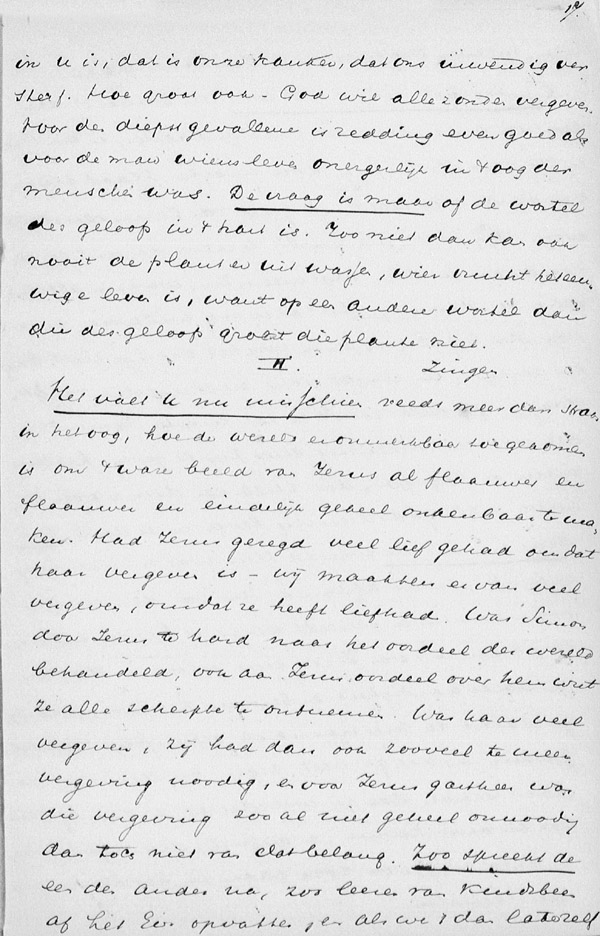 in u is, dat is onze kanker, dat ons inwendig ver
sterf. Hoe groot ook - God wil alle zonden vergeven.
Voor den diepst gevallene is redding even goed als
voor de man wiens leven onergerlijk in 't oog der
menschen was. De vraag is maar of de wortel
des geloofs in 't hart is. Zoo niet dan kan ook
nooit de plant er uit wassen, wier vrucht het eeu
wige leven is, want op een anderen wortel dan
die des geloofs groeit die plante niet.
II. Zingen
Het valt u nu misschien reeds meer dan straks
in het oog, hoe de wereld er onmerkbaar toe gekomen
is om 't ware beeld van Jezus al flaauwer en
flaauwer en eindelijk geheel onkenbaar te ma
ken. Had Jezus gezegd veel lief gehad omdat
haar vergeven is - wij maakten er van veel
vergeven, omdat ze heeft liefhad. Was Simon
door Jezus te hard naar het oordeel der wereld
behandeld, ook aan Jezus oordeel over hem wist
ze alle scherpte te ontnemen. Was haar veel
vergeven, zij had dan ook zooveel te meer
vergeving noodig, en voor Jezus gastheer was
die vergeving zoo al niet geheel onnoodig
dan toch niet van dat belang. Zoo spreekt de
een den ander na, zoo leeren van kindsbeen
af het Evo opvatten, en als we 't dan later zelf